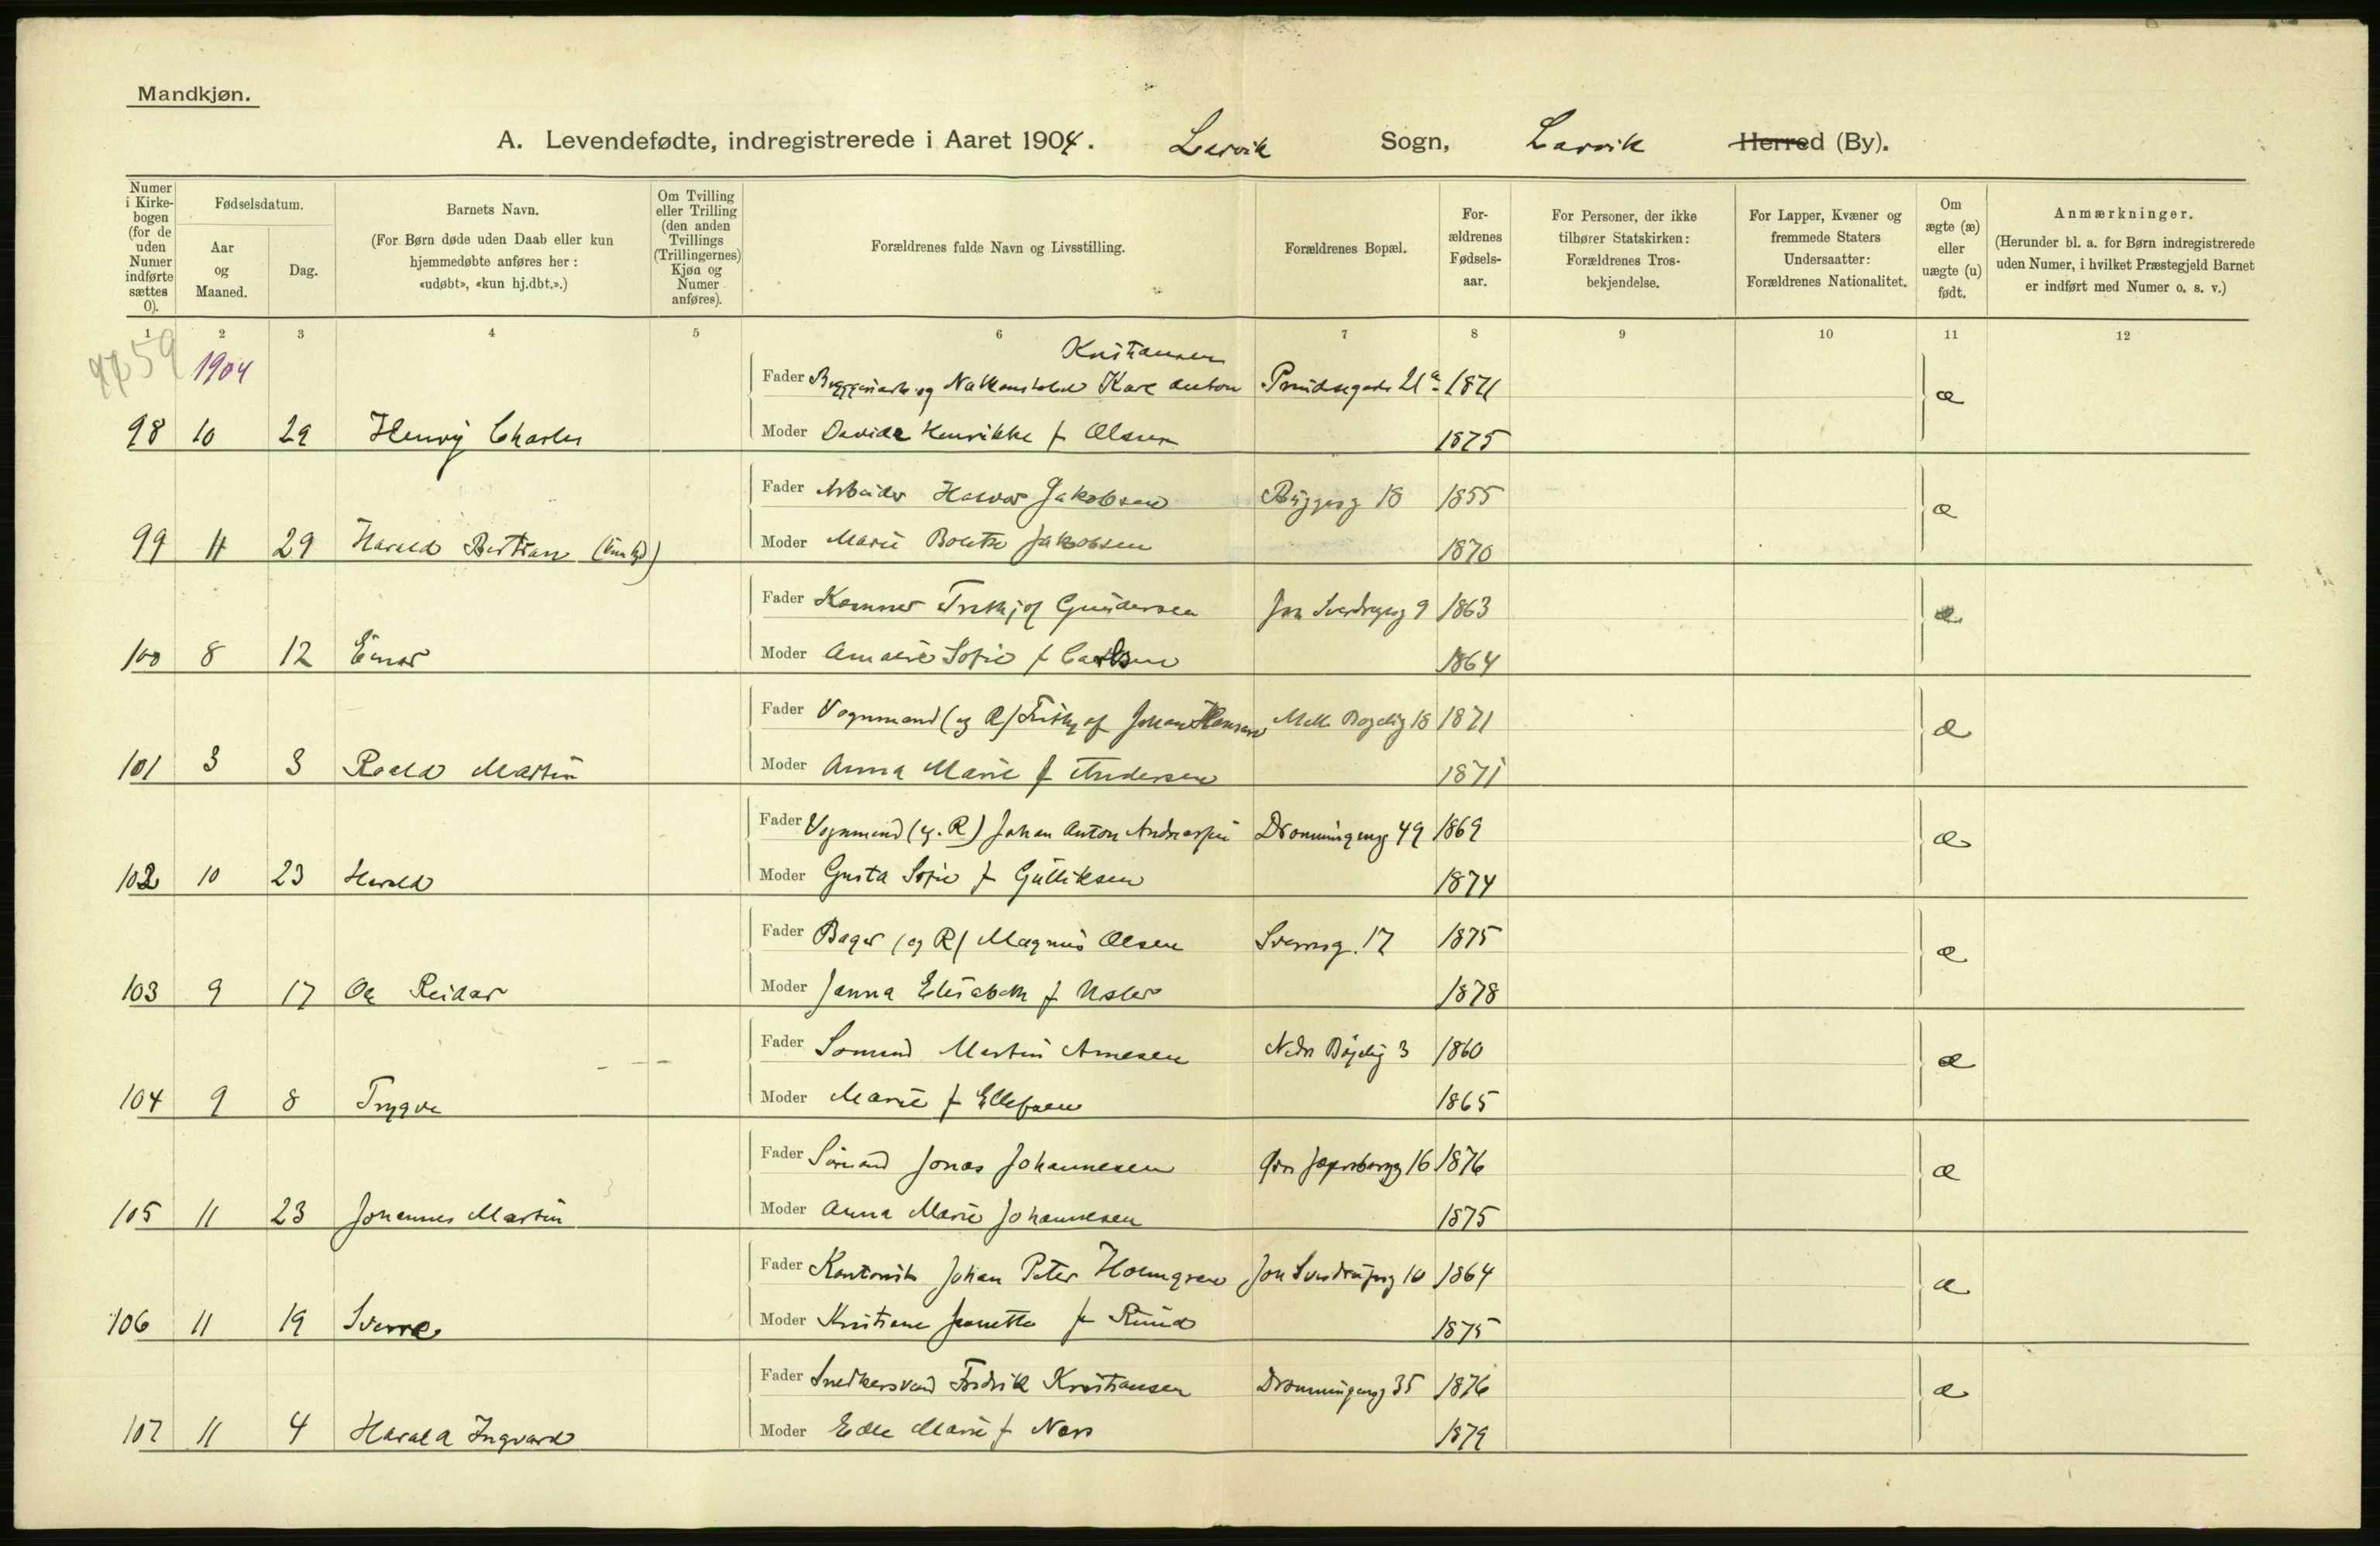 Mandkjøn.
A. Levendefødte, indregistrerede i Aaret 1904. Larvik Sogn, Larvik Herred (By).
Numer i Kirkebogen (for de uden Numer indførte sættes 0).
Fødselsdatum.
Aar og Maaned.
Dag.
Barnets Navn.
(For Børn døde uden Daab eller kun hjemmedøbte anføres her: «udøbt», «kun hj.dbt.».)
Om Tvilling eller Trilling (den anden Tvillings (Trillingernes) Kjøn og Numer anføres).
Forældrenes fulde Navn og Livsstilling.
Forældrenes Bopæl.
Forældrenes Fødselsaar.
For Personer, der ikke tilhører Statskirken: Forældrenes Trosbekjendelse.
For Lapper, Kvæner og fremmede Staters Undersaatter: Forældrenes Nationalitet.
Om ægte (æ) eller uægte (u) født.
Anmærkninger.
(Herunder bl. a. for Børn indregistrerede uden Numer, i hvilket Præstegjeld Barnet er indført med Numer o. s. v.)
1 2 3 4 5 6 7 8 9 10 11 12
59 1904
Kristiansen
Fader Karl Anton 21a 1871 æ
98 10 29 Henry Charles Moder Henrikke f Olsen 1875
Fader Arbeider Halvor Jakobsen Byggesg 18 1855 æ
99 11 29 Harald Moder Marie Bolette Jakobsen 1870
Fader Gundersen Jon Sverdrupsg 9 1863 æ
100 8 12 Einar Moder Amalie Sofie f Carlsen 1864
Fader Vognmand (og R) Johan Hansen 18 1871 æ
101 3 3 Roald Martin Moder Anna Marie f Andersen 1871
Fader Vognmand (og R) Johan Anton Dronningensg 49 1869 æ
102 10 23 Harald Moder Gusta Sofie f Gulliksen 1874
Fader Bager (og R) Magnus Olsen Sverresg. 17 1875 æ
103 9 17 Reidar Moder Janna Elisabeth f 1878
Fader Sømand Martin Arnesen Nedre Bøjelig 3 1860 æ
104 9 8 Trygve Moder Marie f Ellefsen 1865
Fader Sømand Jonas Johannesen 16 1876 æ
105 11 23 Johannes Martin Moder Anna Marie Johannesen 1875
Fader Kontorist Johan Peter Holmgren Jon Sverdrupsg 10 1864 æ
106 11 19 Sverre Moder Kristiane Jeanette f Ruud 1875
Fader Snedkersvend Fredrik Kristiansen Dronningensg 35 1876 æ
107 11 4 Harald Ingvard Moder Edle Marie f Næss 1879